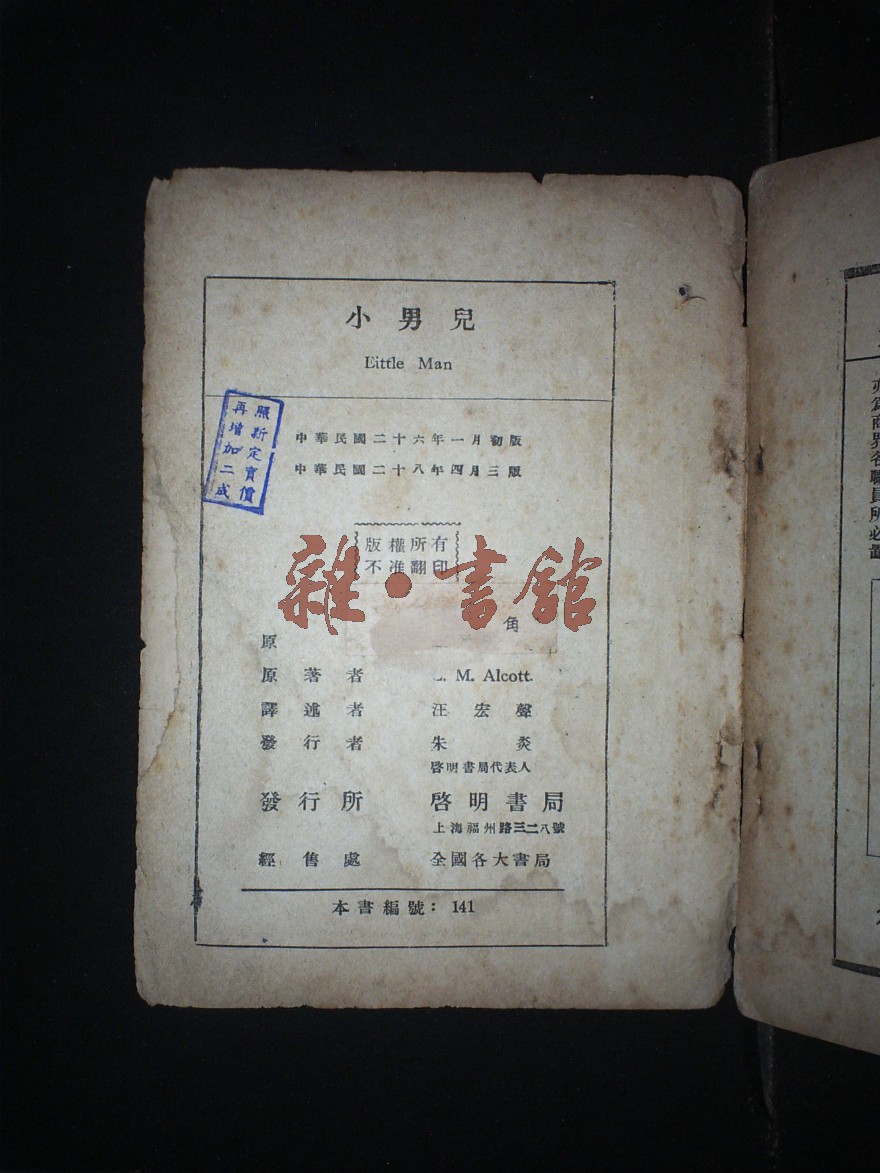 小男兒
Eittle Man
照新定實價
再增加二成
中華民國二十六年一月初版
中華民國二十八年四月三版
版權所有
不准翻印
雜·書館
角
原
原著者 L. M. Alcott.
譯述者 汪宏聲
發行者 朱炎
啓明書局代表人
發行所 啓明書局
上海福州路三二八號
經售處 全國各大書局
本書編號：141
亦爲商界各職員所必